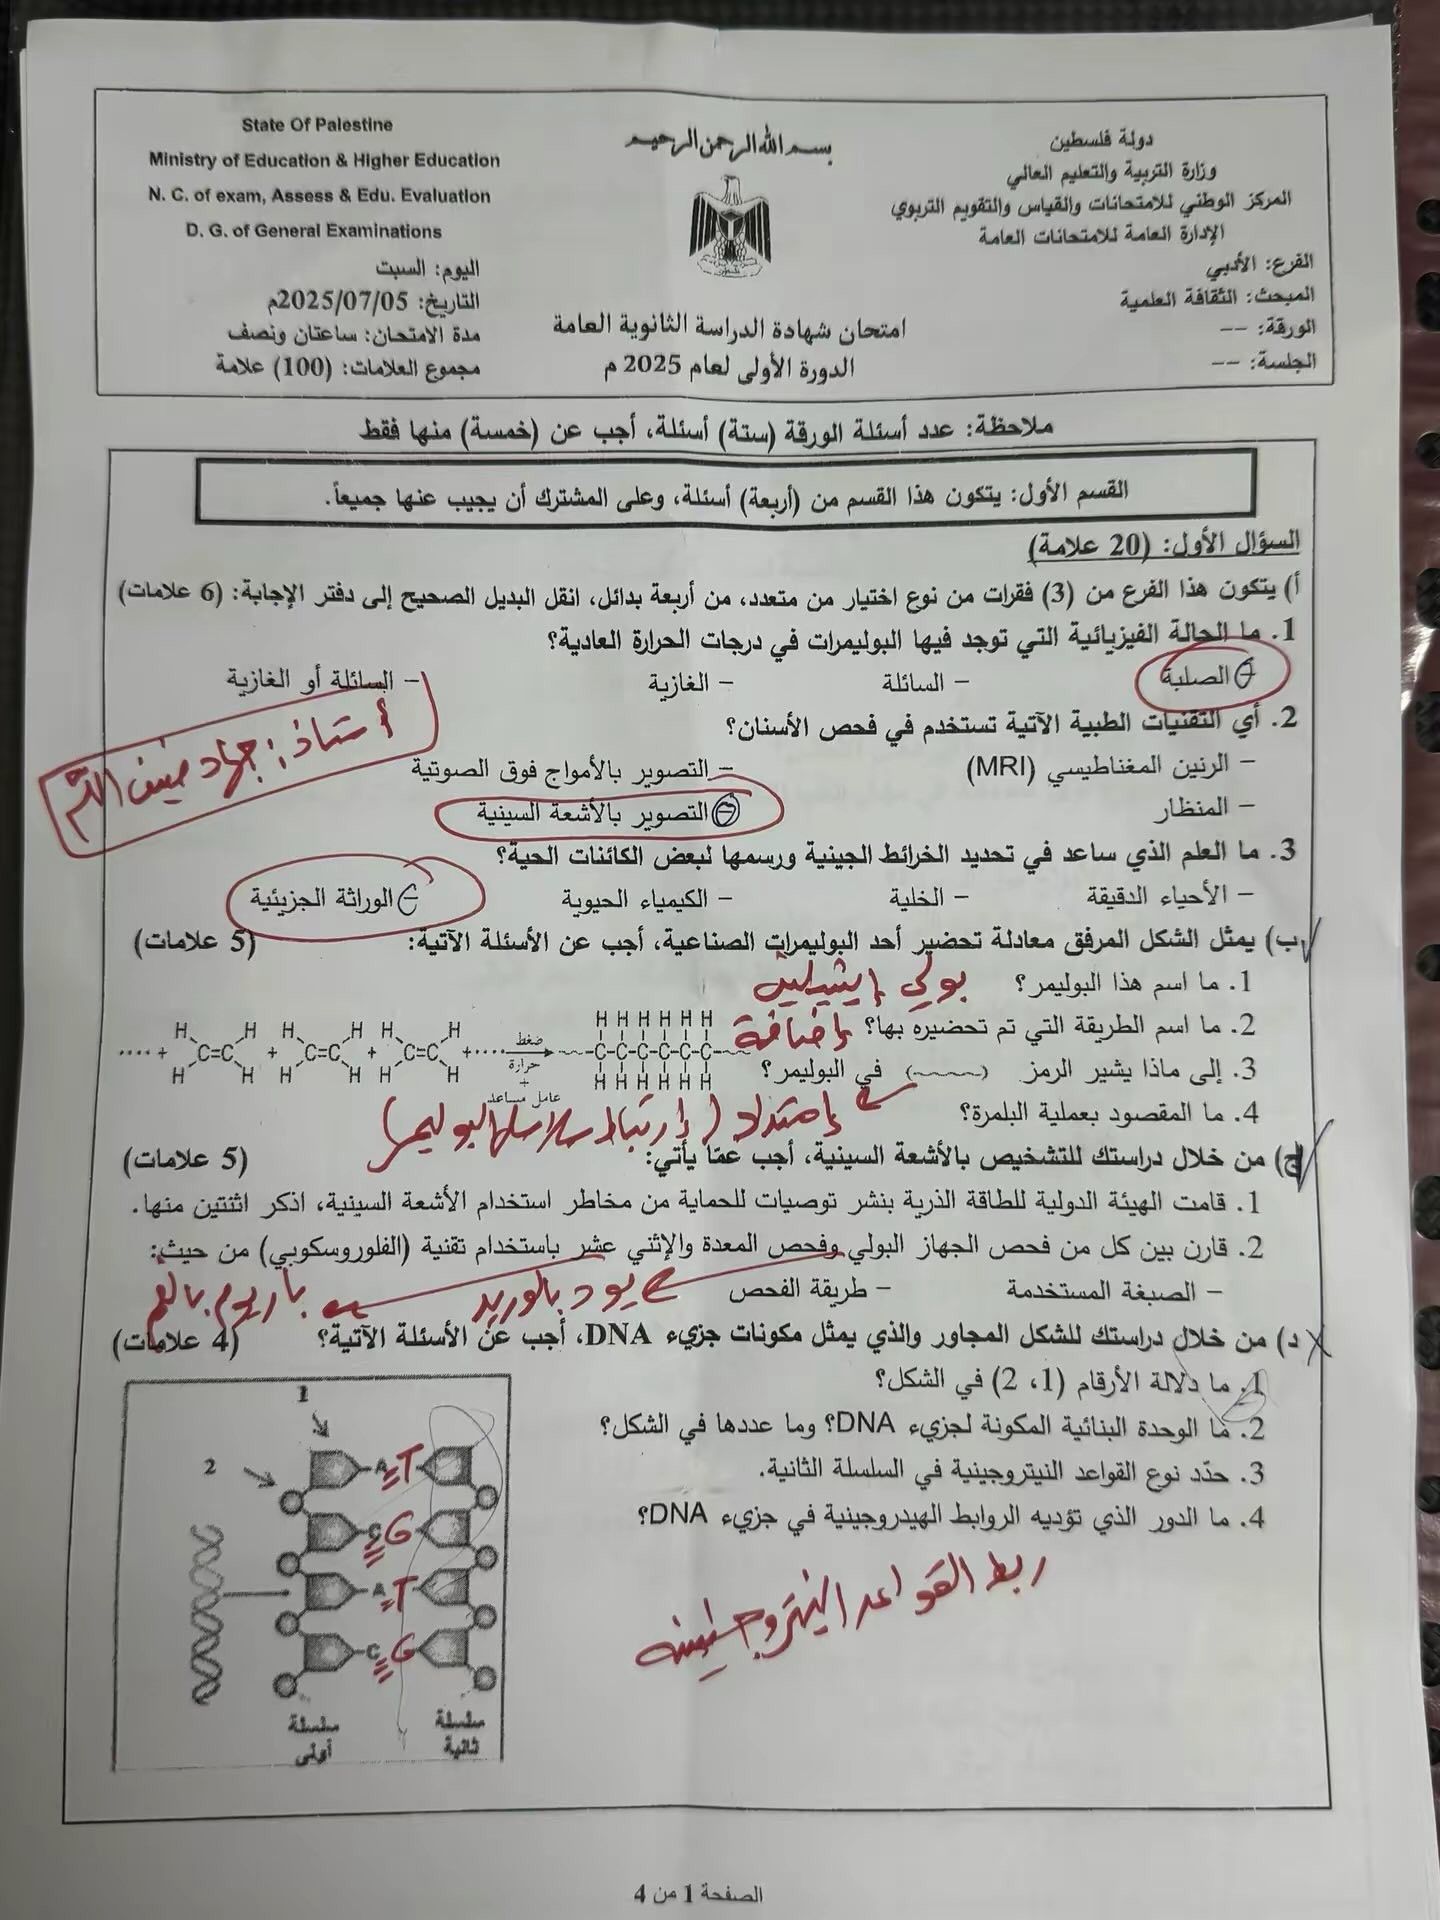 State Of Palestine
Ministry of Education & Higher Education
N. C. of exam, Assess & Edu. Evaluation
D. G. of General Examinations
اليوم: السبت
التاريخ: 2025/07/05م
مدة الامتحان: ساعتان ونصف
مجموع العلامات: (100) علامة
بسم الله الرحمن الرحيم
فلسطين
امتحان شهادة الدراسة الثانوية العامة
الدورة الأولى لعام 2025 م
دولة فلسطين
وزارة التربية والتعليم العالي
المركز الوطني للامتحانات والقياس والتقويم التربوي
الإدارة العامة للامتحانات العامة
الفرع: الأدبي
المبحث: الثقافة العلمية
الورقة: --
الجلسة: --
ملاحظة: عدد أسئلة الورقة (ستة) أسئلة، أجب عن (خمسة) منها فقط
القسم الأول: يتكون هذا القسم من (أربعة) أسئلة، وعلى المشترك أن يجيب عنها جميعاً.
السؤال الأول: (20 علامة)
أ) يتكون هذا الفرع من (3) فقرات من نوع اختيار من متعدد، من أربعة بدائل، انقل البديل الصحيح إلى دفتر الإجابة: (6 علامات)
1. ما الحالة الفيزيائية التي توجد فيها البوليمرات في درجات الحرارة العادية؟
- الصلبة - السائلة - الغازية - السائلة أو الغازية
2. أي التقنيات الطبية الآتية تستخدم في فحص الأسنان؟
أستاذ: جهاد ضيف الله
- الرنين المغناطيسي (MRI) - التصوير بالأمواج فوق الصوتية
- المنظار - التصوير بالأشعة السينية
3. ما العلم الذي ساعد في تحديد الخرائط الجينية ورسمها لبعض الكائنات الحية؟
- الأحياء الدقيقة - الخلية - الكيمياء الحيوية - الوراثة الجزيئية
ب) يمثل الشكل المرفق معادلة تحضير أحد البوليمرات الصناعية، أجب عن الأسئلة الآتية: (5 علامات)
1. ما اسم هذا البوليمر؟ بولي إيثيلين
2. ما اسم الطريقة التي تم تحضيره بها؟ إضافة
3. إلى ماذا يشير الرمز (﹏﹏) في البوليمر؟
إمتداد (إرتباط سلاسل البوليمر)
4. ما المقصود بعملية البلمرة؟
H H H H H H H H H H H H
.... + C=C + C=C + C=C +....
ضغط
حرارة
+
عامل مساعد
H H H H H H
-C-C-C-C-C-C-
H H H H H H
ج) من خلال دراستك للتشخيص بالأشعة السينية، أجب عمّا يأتي: (5 علامات)
1. قامت الهيئة الدولية للطاقة الذرية بنشر توصيات للحماية من مخاطر استخدام الأشعة السينية، اذكر اثنتين منها.
2. قارن بين كل من فحص الجهاز البولي وفحص المعدة والإثني عشر باستخدام تقنية (الفلوروسكوبي) من حيث:
- الصبغة المستخدمة - طريقة الفحص
يود بالوريد باريوم بالفم
د) من خلال دراستك للشكل المجاور والذي يمثل مكونات جزيء DNA، أجب عن الأسئلة الآتية؟ (4 علامات)
1. ما دلالة الأرقام (1، 2) في الشكل؟
2. ما الوحدة البنائية المكونة لجزيء DNA؟ وما عددها في الشكل؟
3. حدّد نوع القواعد النيتروجينية في السلسلة الثانية.
4. ما الدور الذي تؤديه الروابط الهيدروجينية في جزيء DNA؟
ربط القواعد النيتروجينية
1
2
A T
C G
A T
C G
سلسلة أولى
سلسلة ثانية
الصفحة 1 من 4